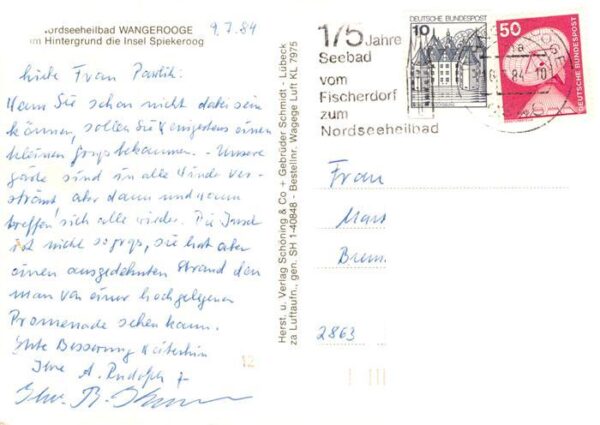 Nordseeheilbad WANGEROOGE
im Hintergrund die Insel Spiekeroog
9.7.84
Liebe Frau
Wenn Sie schon nicht dabei sein
können, sollen Sie wenigstens einen
kleinen bekommen. - Unsere
sind in alle Winde ver-
streut, aber dann und wann
treffen sich alle wieder. Die Insel
ist nicht so groß, sie hat aber
einen ausgedehnten Strand den
man von einer hochgelegenen
Promenade sehen kann.
Gute Besserung weiterhin
Ihre A. Rudolph
Herst. u. Verlag Schöning & Co + Gebrüder Schmidt - Lübeck
za Luftaufn., gen. SH 1-40848 - Bestellnr. Wagege Luft KL 7975
175 Jahre
Seebad
vom
Fischerdorf
zum
Nordseeheilbad
10
DEUTSCHE BUNDESPOST
50
DEUTSCHE BUNDESPOST
84.10
Frau
Brem
2863
12